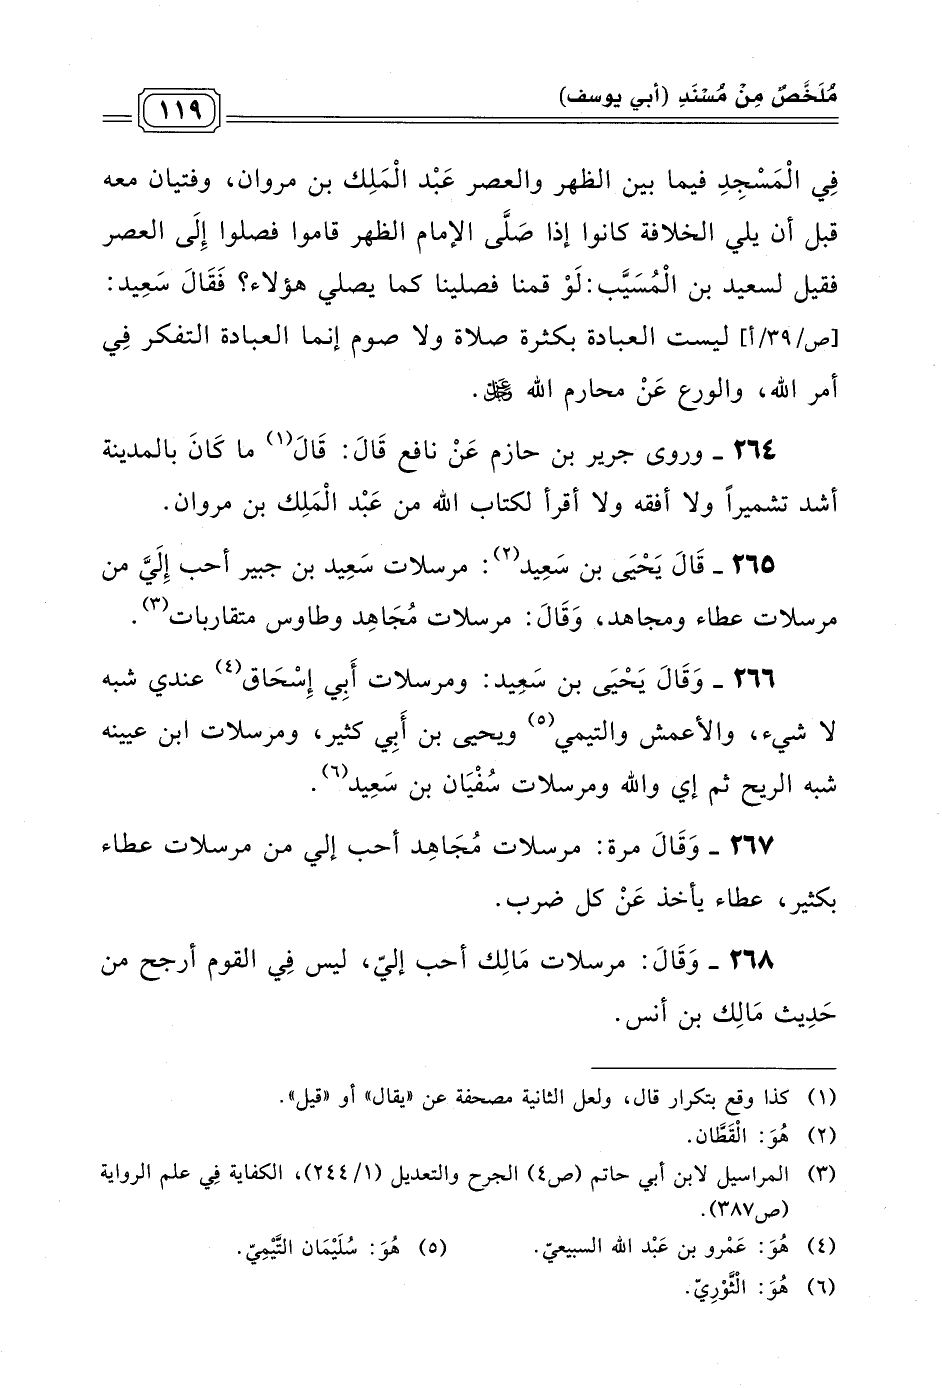 مُلَخَّصٌ مِنْ مُسْنَدِ (أبي يوسف)
١١٩
فِي الْمَسْجِدِ فيما بين الظهر والعصر عَبْد الْمَلِك بن مروان، وفتيان معه
قبل أن يلي الخلافة كانوا إذا صَلَّى الإمام الظهر قاموا فصلوا إِلَى العصر
فقيل لسعيد بن الْمُسَيَّب: لَوْ قمنا فصلينا كما يصلي هؤلاء؟ فَقَالَ سَعِيد:
[ص/٣٩/أ] ليست العبادة بكثرة صلاة ولا صوم إنما العبادة التفكر فِي
أمر الله، والورع عَنْ محارم الله ﷻ.
٢٦٤ ـ وروى جرير بن حازم عَنْ نافع قَالَ: قَالَ(١) ما كَانَ بالمدينة
أشد تشميراً ولا أفقه ولا أقرأ لكتاب الله من عَبْد الْمَلِك بن مروان.
٢٦٥ ـ قَالَ يَحْيَى بن سَعِيد(٢): مرسلات سَعِيد بن جبير أحب إِلَيَّ من
مرسلات عطاء ومجاهد، وَقَالَ: مرسلات مُجَاهِد وطاوس متقاربات(٣).
٢٦٦ ـ وَقَالَ يَحْيَى بن سَعِيد: ومرسلات أَبِي إِسْحَاق(٤) عندي شبه
لا شيء، والأعمش والتيمي(٥) ويحيى بن أَبِي كثير، ومرسلات ابن عيينه
شبه الريح ثم إي والله ومرسلات سُفْيَان بن سَعِيد(٦).
٢٦٧ ـ وَقَالَ مرة: مرسلات مُجَاهِد أحب إلي من مرسلات عطاء
بكثير، عطاء يأخذ عَنْ كل ضرب.
٢٦٨ ـ وَقَالَ: مرسلات مَالِك أحب إليّ، ليس فِي القوم أرجح من
حَدِيث مَالِك بن أنس.
(١) كذا وقع بتكرار قال، ولعل الثانية مصحفة عن «يقال» أو «قيل».
(٢) هُوَ: الْقَطَّان.
(٣) المراسيل لابن أبي حاتم (ص٤) الجرح والتعديل (٢٤٤/١)، الكفاية فِي علم الرواية
(ص٣٨٧).
(٤) هُوَ: عَمْرو بن عَبْد الله السبيعيّ. (٥) هُوَ: سُلَيْمَان التَّيْمِيّ.
(٦) هُوَ: الثَّوْرِيّ.